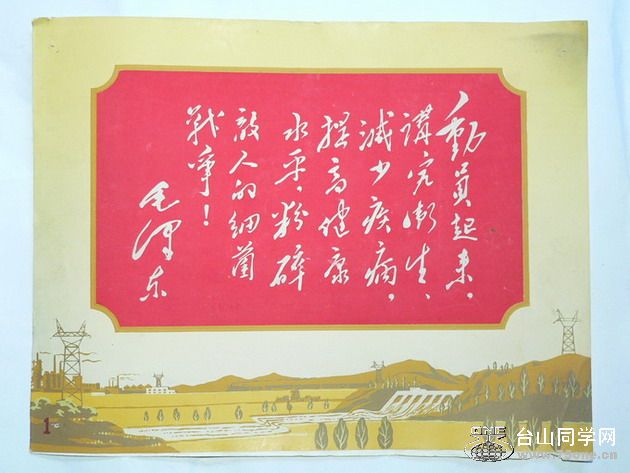 動員起来，
講究衛生、
減少疾病，
提高健康
水平，粉碎
敌人的细菌
战争！
毛泽东
1
台山同学网